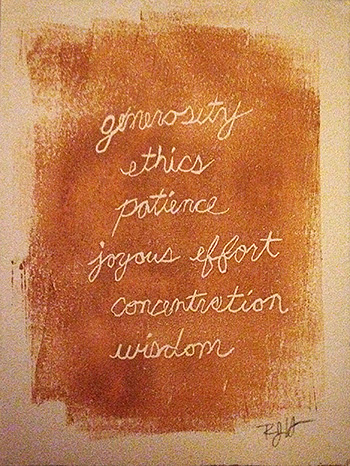 generosity
ethics
patience
joyous effort
concentration
wisdom